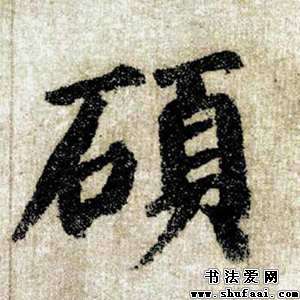 碩
书法爱网
www.shufaai.com